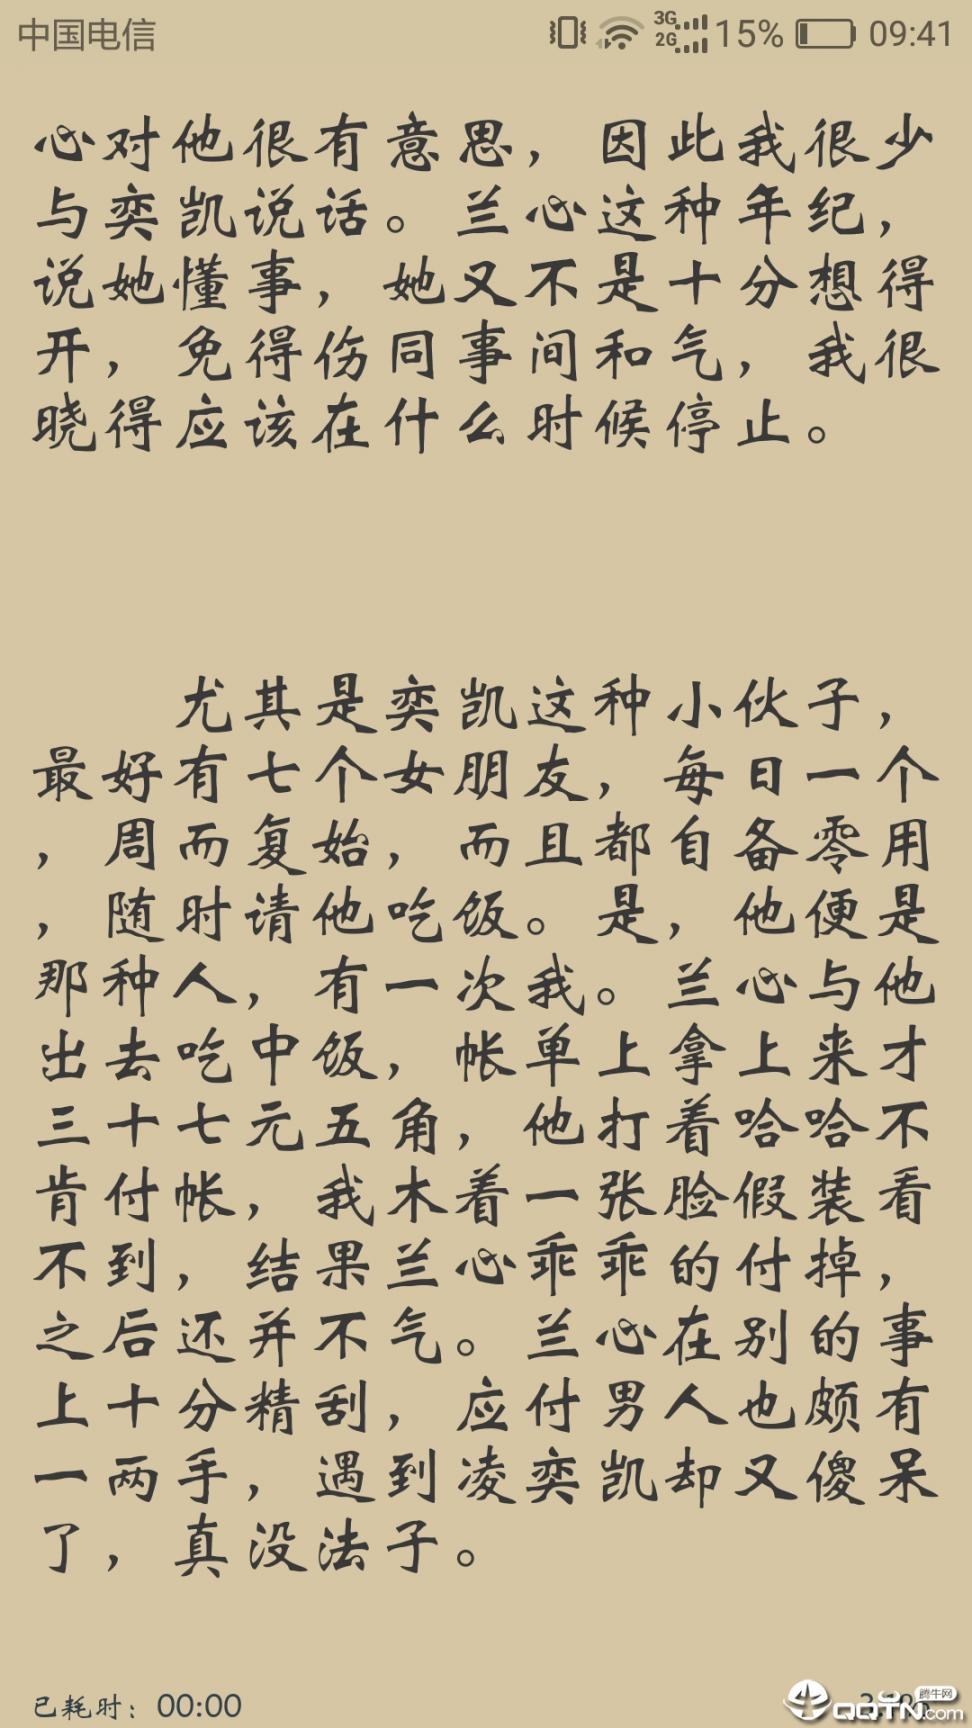 中国电信 3G 2G 15% 09:41
心对他很有意思，因此我很少
与奕凯说话。兰心这种年纪，
说她懂事，她又不是十分想得
开，免得伤同事间和气，我很
晓得应该在什么时候停止。
尤其是奕凯这种小伙子，
最好有七个女朋友，每日一个
，周而复始，而且都自备零用
，随时请他吃饭。是，他便是
那种人，有一次我。兰心与他
出去吃中饭，帐单上拿上来才
三十七元五角，他打着哈哈不
肯付帐，我木着一张脸假装看
不到，结果兰心乖乖的付掉，
之后还并不气。兰心在别的事
上十分精刮，应付男人也颇有
一两手，遇到凌奕凯却又傻呆
了，真没法子。
已耗时：00:00
腾牛网
QQTN.com